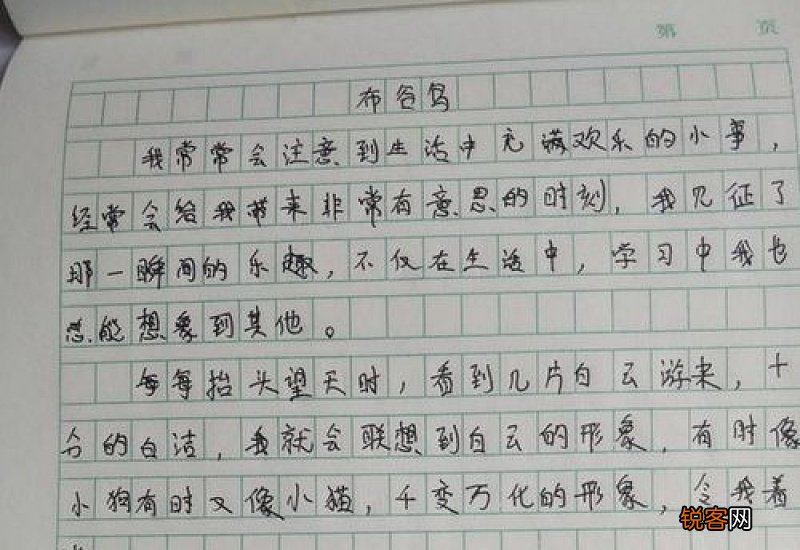 第 页
布谷鸟
我常常会注意到生活中充满欢乐的小事，
经常会给我带来非常有意思的时刻，我见征了
那一瞬间的乐趣，不仅在生活中，学习中我也
总能想象到其他。
每每抬头望天时，看到几片白云游来，十
分的白洁，我就会联想到白云的形象，有时像
小狗有时又像小猫，千变万化的形象，令我着
锐客网